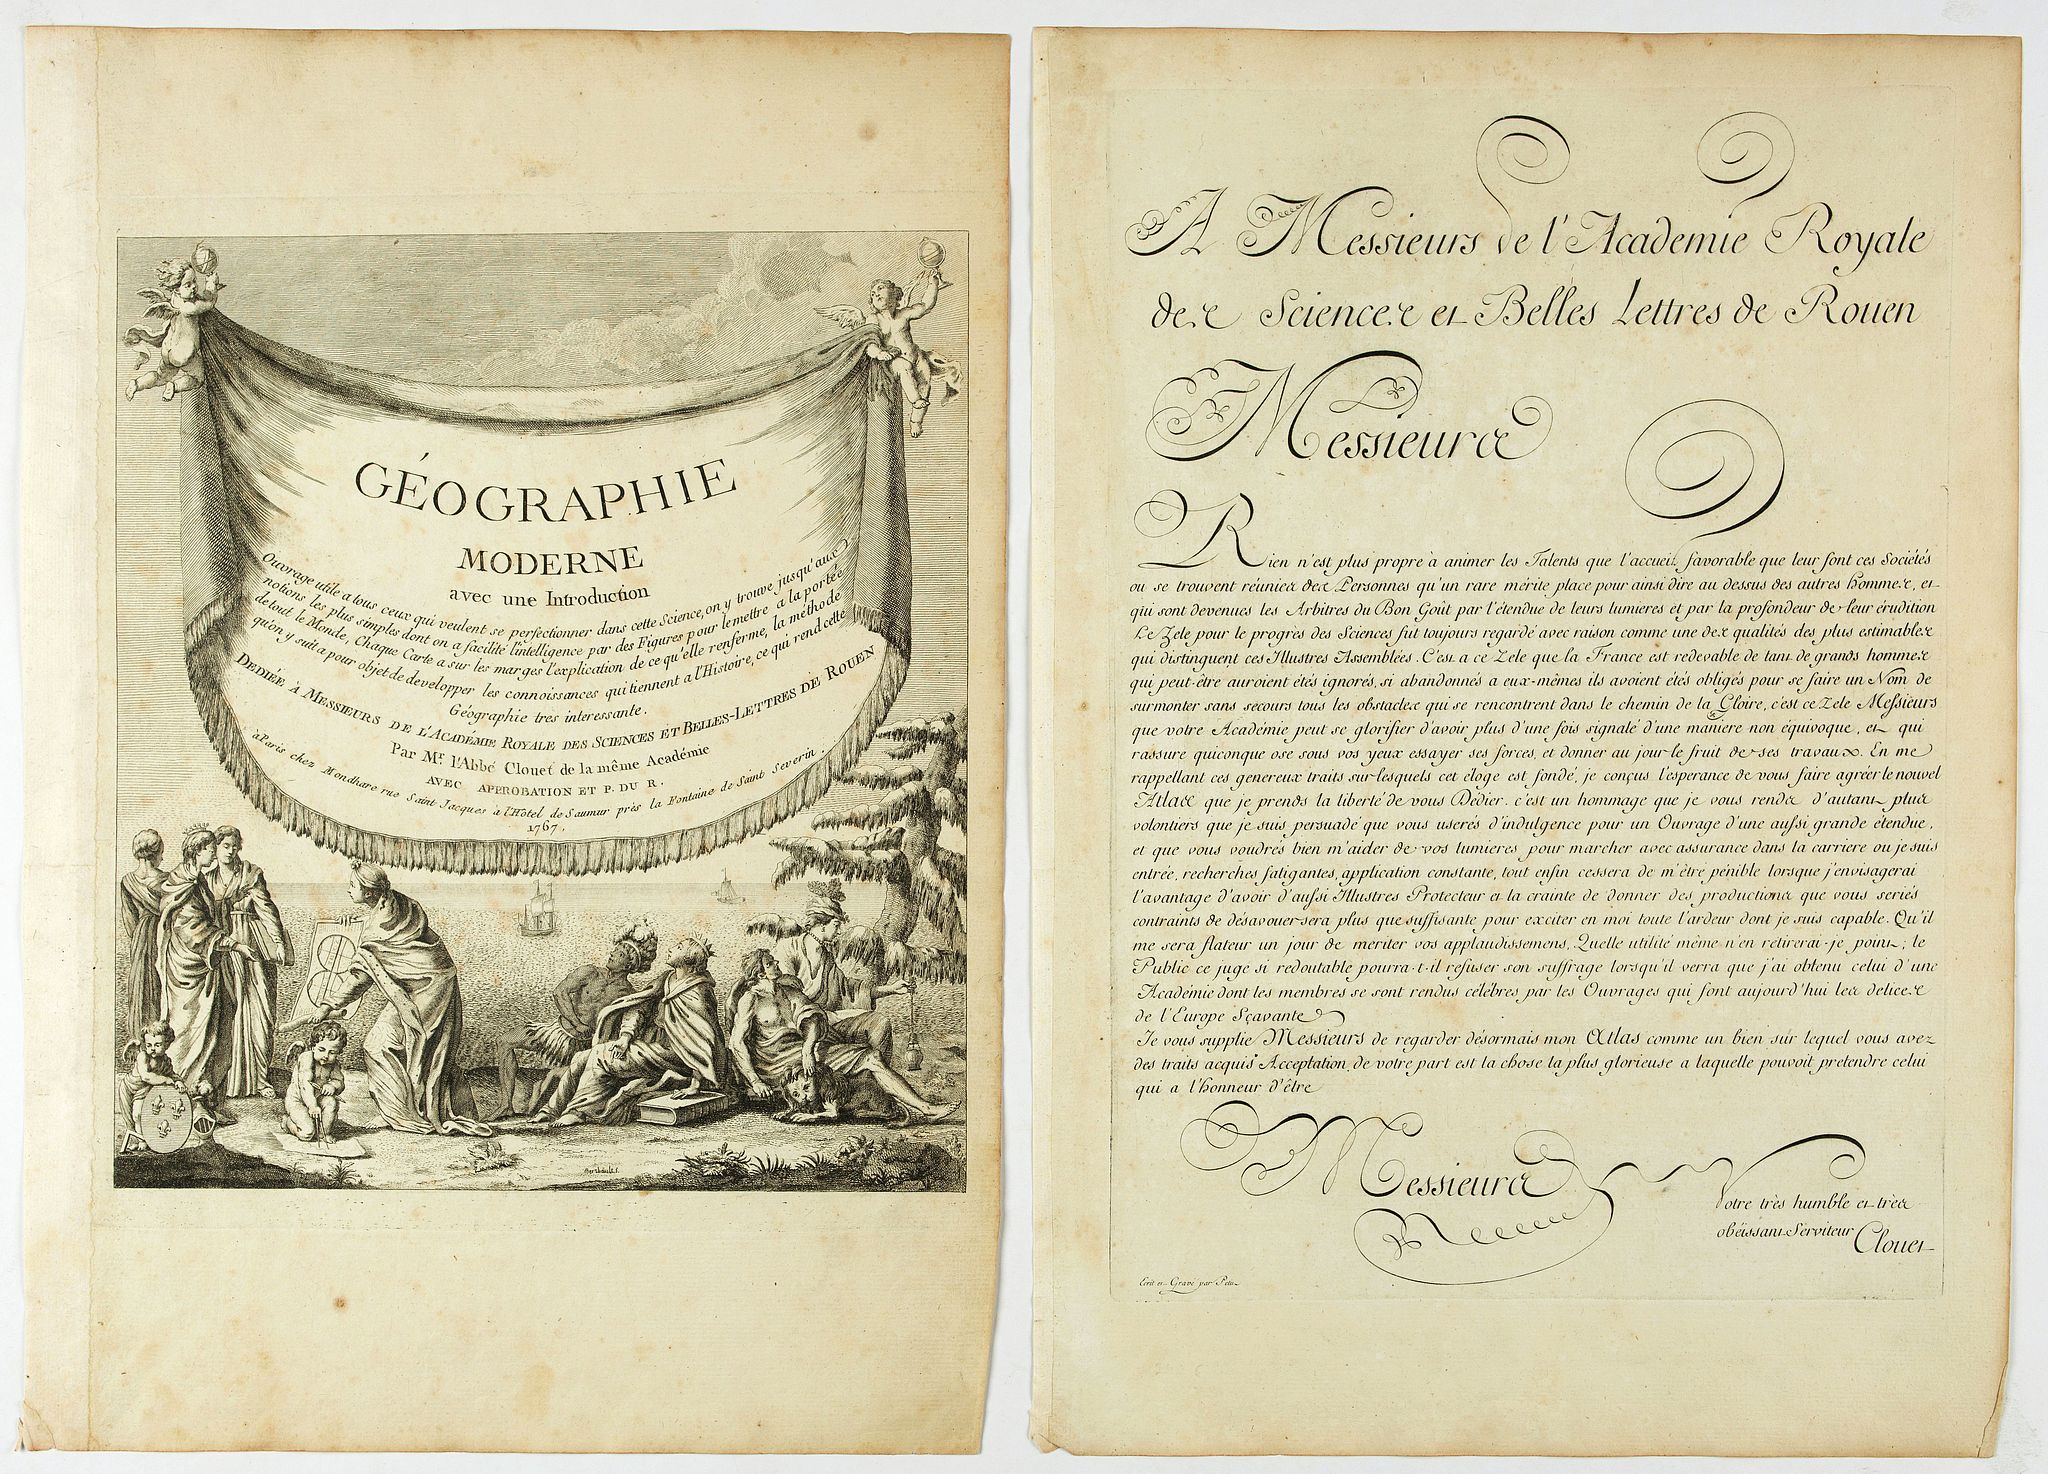 GÉOGRAPHIE
MODERNE
avec une Introduction
Ouvrage utile a tous ceux qui veulent se perfectionner dans cette Science, on y trouve jusqu'aux
notions les plus simples dont on a facilité l'intelligence par des Figures pour le mettre a la portée
de tout le Monde, Chaque Carte a sur les marges l'explication de ce qu'elle renferme, la méthode
qu'on y suit a pour objet de developper les connoissances qui tiennent a l'Histoire, ce qui rend cette
Géographie tres interessante.
DEDIÉE À MESSIEURS DE L'ACADÉMIE ROYALE DES SCIENCES ET BELLES-LETTRES DE ROUEN
Par Mr. l'Abbé Clouet de la même Académie
AVEC APPROBATION ET P. DU R.
à Paris chez Mondhare rue Saint Jacques à l'Hôtel de Saumur près la Fontaine de Saint Severin.
1767.
Berthault s.
A Messieurs de l'Academie Royale
des Sciences et Belles Lettres de Rouen
Messieurs
Rien n'est plus propre à animer les Talents que l'accueil favorable que leur font ces Sociétés
ou se trouvent réunies des Personnes qu'un rare mérite place pour ainsi dire au dessus des autres hommes, et
qui sont devenues les Arbitres du Bon Goût par l'étendue de leurs lumieres et par la profondeur de leur érudition
Le Zele pour le progrès des Sciences fut toujours regardé avec raison comme une des qualités des plus estimables
qui distinguent ces Illustres Assemblées. C'est a ce Zele que la France est redevable de tant de grands hommes
qui peut-être auroient étés ignorés, si abandonnés a eux-mêmes ils avoient étés obligés pour se faire un Nom de
surmonter sans secours tous les obstacles qui se rencontrent dans le chemin de la Gloire, c'est ce Zele Messieurs
que votre Académie peut se glorifier d'avoir plus d'une fois signalé d'une maniere non équivoque, et qui
rassure quiconque ose sous vos yeux essayer ses forces, et donner au jour le fruit de ses travaux. En me
rappellant ces genereux traits sur lesquels cet éloge est fondé, je conçus l'esperance de vous faire agréer le nouvel
Atlas que je prends la liberté de vous Dédier. c'est un hommage que je vous rends d'autant plus
volontiers que je suis persuadé que vous userés d'indulgence pour un Ouvrage d'une aussi grande étendue,
et que vous voudrés bien m'aider de vos lumieres pour marcher avec assurance dans la carriere ou je suis
entrée, recherches fatigantes, application constante, tout enfin cessera de m'être pénible lorsque j'envisagerai
l'avantage d'avoir d'aussi Illustres Protecteur et la crainte de donner des productions que vous seriés
contraints de désavouer sera plus que suffisante pour exciter en moi toute l'ardeur dont je suis capable. Qu'il
me sera flateur un jour de meriter vos applaudissemens, Quelle utilité même n'en retirerai-je point; le
Public ce juge si redoutable pourra-t-il refuser son suffrage lorsqu'il verra que j'ai obtenu celui d'une
Académie dont les membres se sont rendus célébres par les Ouvrages qui font aujourd'hui les delices
de l'Europe Sçavante
Je vous supplie Messieurs de regarder désormais mon Atlas comme un bien sur lequel vous avez
des traits acquis Acceptation de votre part est la chose la plus glorieuse a laquelle pouvoit pretendre celui
qui a l'honneur d'être
Messieurs
Votre très humble et très
obéissant Serviteur Clouet
Ecrit et Gravé par Petit